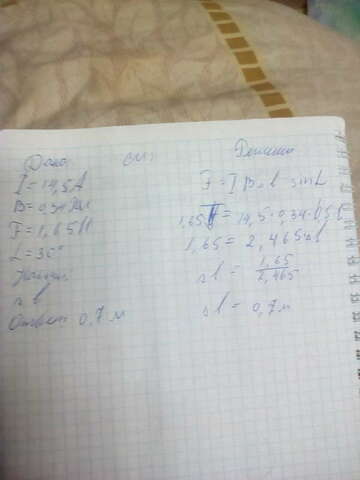 Дано: СИ:
I = 14,5 А
B = 0,34 Тл
F = 1,65 Н
L = 30°
Найти:
Δl
Ответ: 0,7 м
Решение
F = I B Δl sin L
1,65 = 14,5 · 0,34 · 0,5 l
1,65 = 2,465 Δl
Δl = 1,65 / 2,465
Δl = 0,7 м